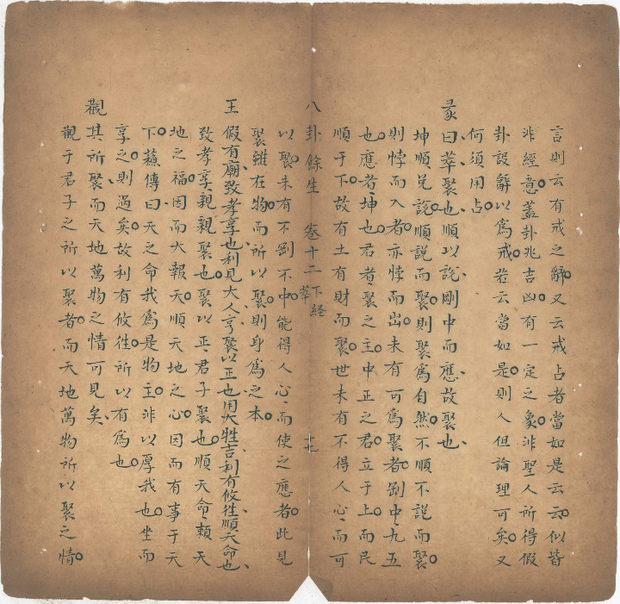 言則云有戒之辭又云戒占者當如是云云似皆
非經意蓋卦兆吉凶有一定之象非聖人所得假
卦設辭以爲戒若云當如是則人但論理可矣又
何須用占
彖曰萃聚也順以說剛中而應故聚也
坤順兌說順說而聚則聚爲自然不順不說而聚
則悖而入者亦悖而出未有可爲聚者剛中九五
也應者坤也君者聚之主中正之君立于上而民
順于下故有土有財而聚世未有不得人心而可
八卦餘生 卷十二 下經 萃 七
以聚未有不剛不中能得人心而使之應者此見
聚雖在物而所以聚則身爲之本
王假有廟致孝享也利見大人亨聚以正也用大牲吉利有攸往順天命也
致孝享親親聚也聚以正君子聚也順天命賴天
地之福因而大報天順天地之心因而有事于天
下蘓傳曰天之命我爲是物主非以厚我也坐而
享之則過矣故利有攸徃所以有爲也
觀其所聚而天地萬物之情可見矣
觀于君子之所以聚者而天地萬物所以聚之情